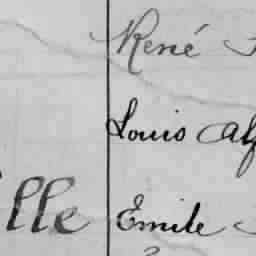 René
Louis Alf
lle Emile